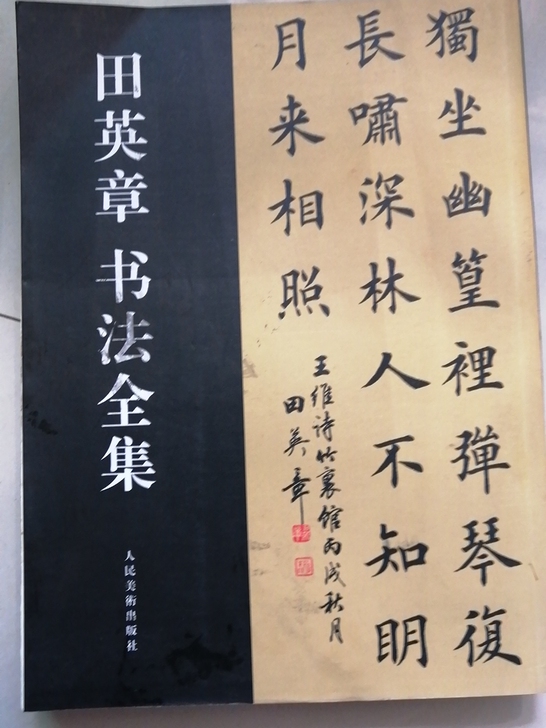 田英章 书法全集
人民美術出版社
獨坐幽篁裡彈琴復
長嘯深林人不知明
月来相照
王维诗竹裏馆丙戌秋月
田英章